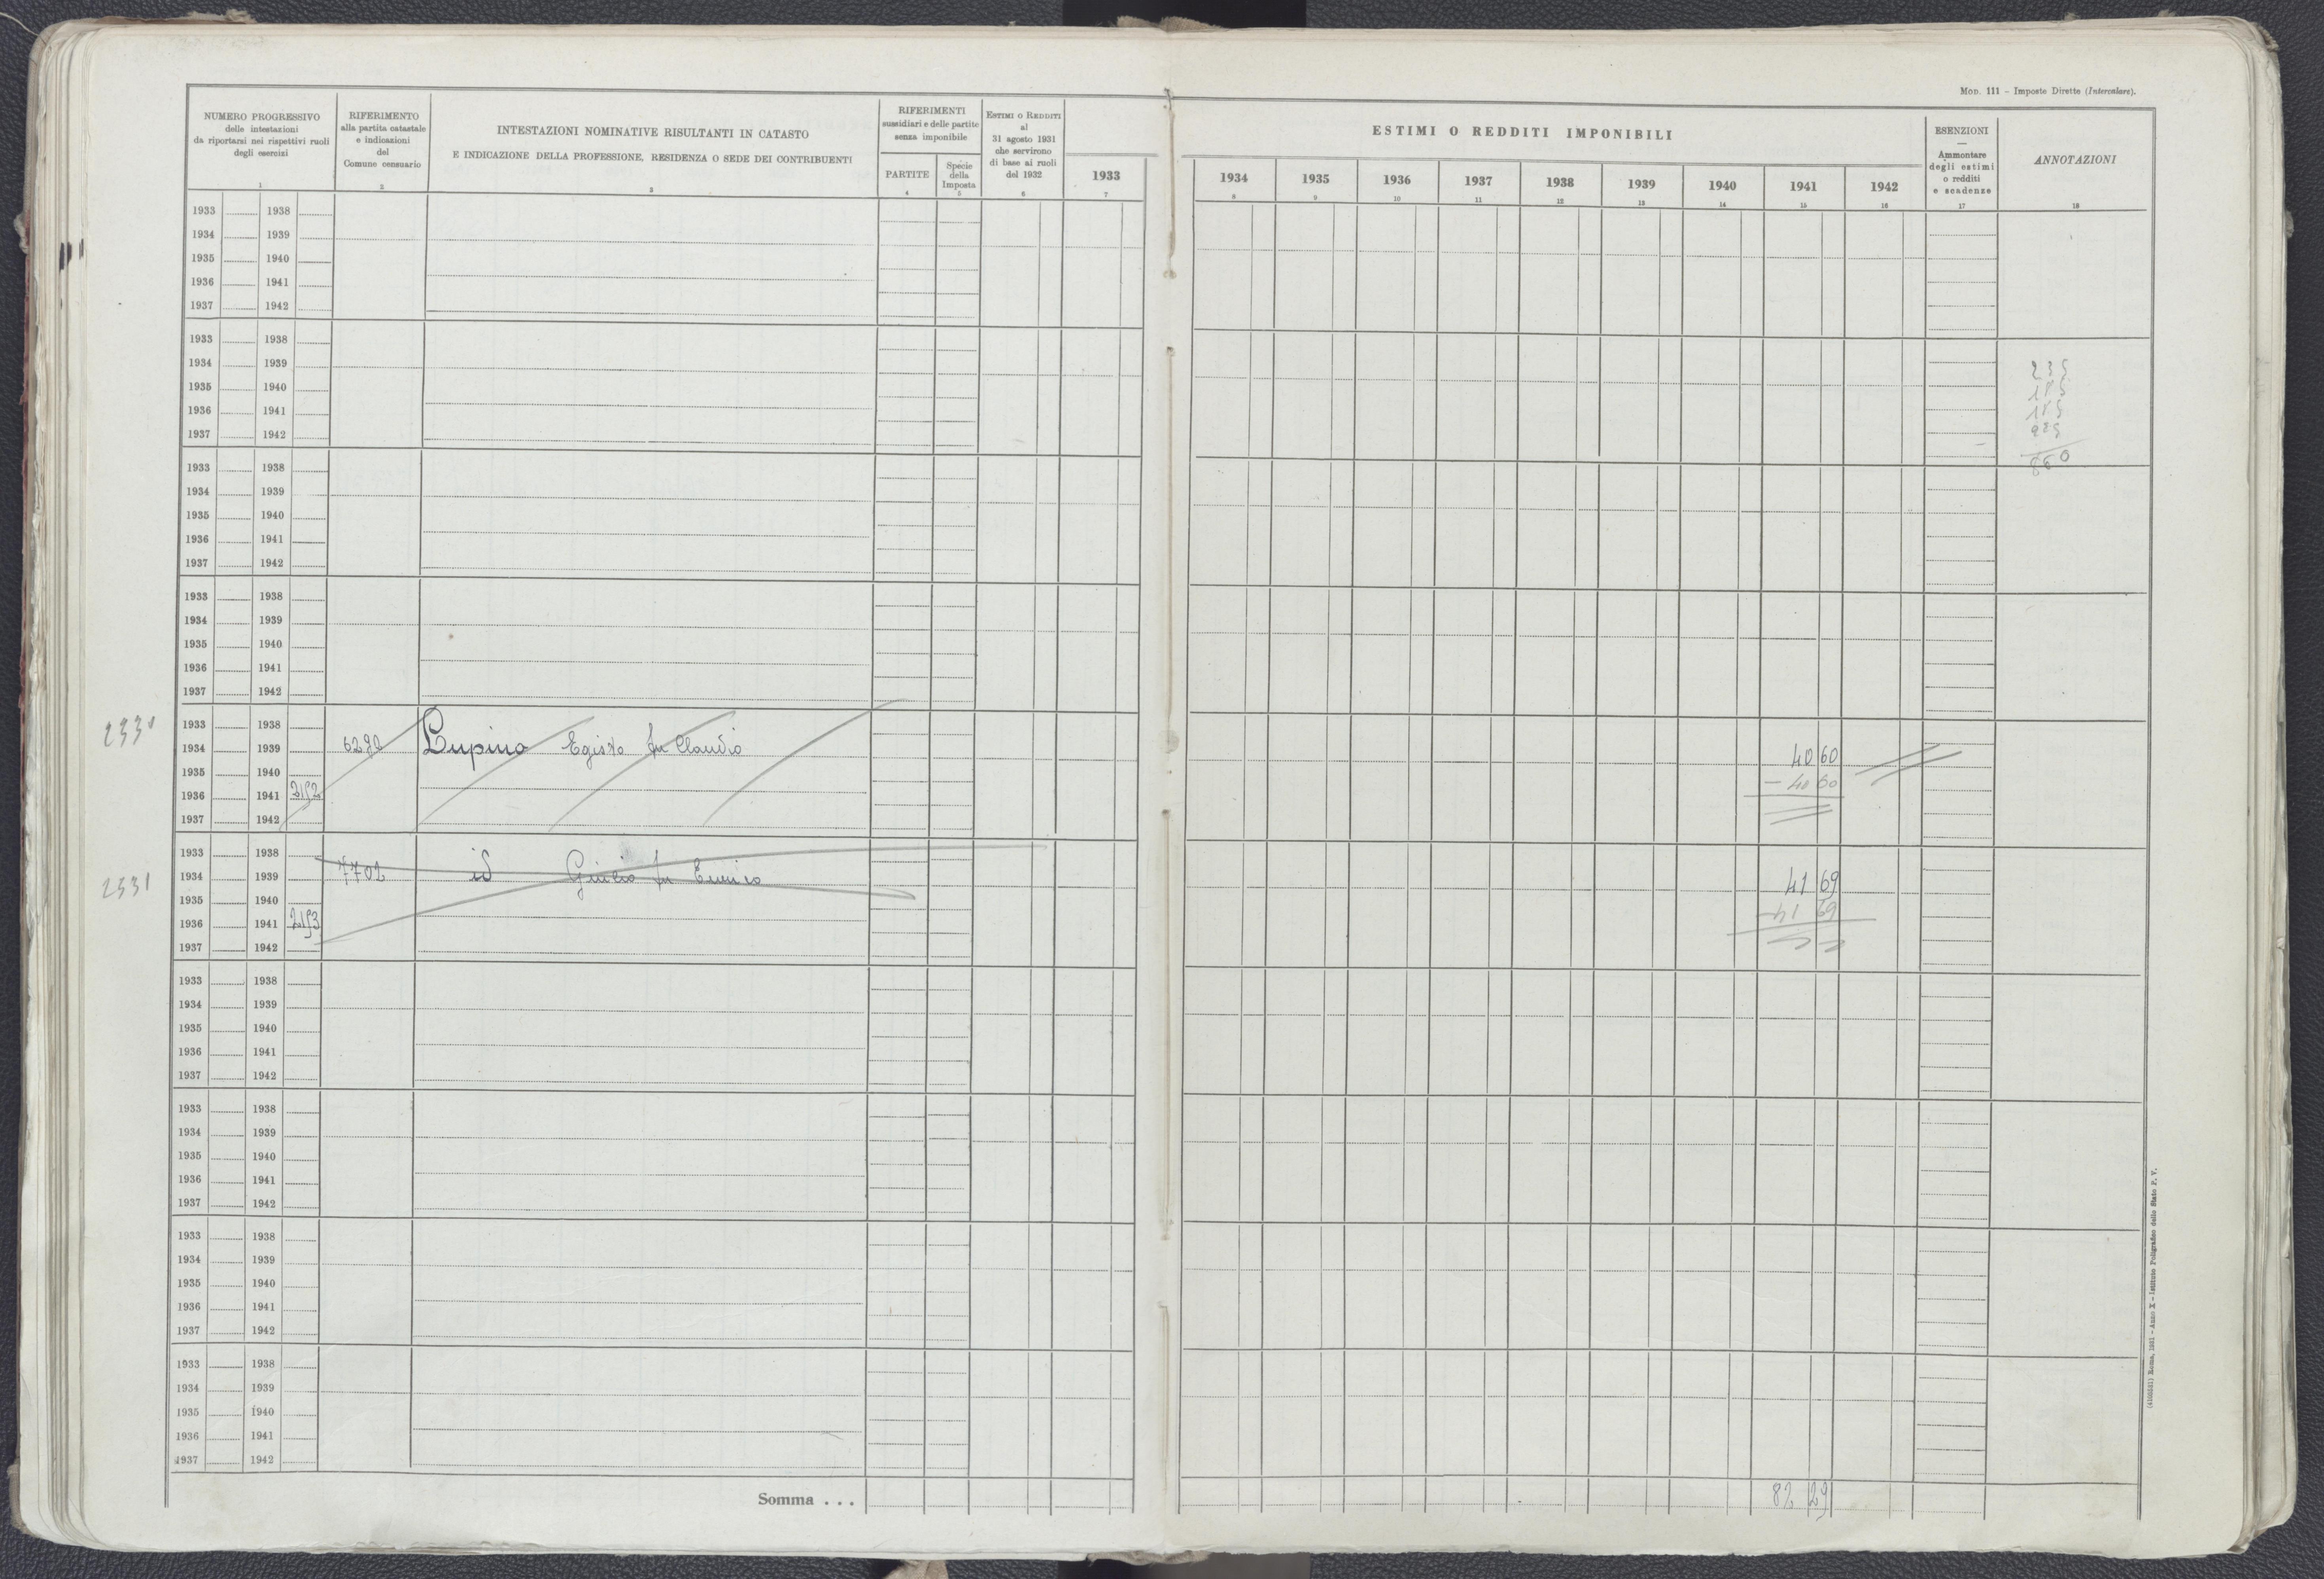 MOD. 111 – Imposte Dirette (Intercalare).
NUMERO PROGRESSIVO
delle intestazioni
da riportarsi nei rispettivi ruoli
degli esercizi
1
RIFERIMENTO
alla partita catastale
e indicazioni
del
Comune censuario
2
INTESTAZIONI NOMINATIVE RISULTANTI IN CATASTO
E INDICAZIONE DELLA PROFESSIONE, RESIDENZA O SEDE DEI CONTRIBUENTI
3
RIFERIMENTI
sussidiari e delle partite
senza imponibile
PARTITE
4
Specie
della
Imposta
5
ESTIMI O REDDITI
al
31 agosto 1931
che servirono
di base ai ruoli
del 1932
6
1933
7
ESTIMI O REDDITI IMPONIBILI
1934 1935 1936 1937 1938 1939 1940 1941 1942
8 9 10 11 12 13 14 15 16
ESENZIONI
—
Ammontare
degli estimi
o redditi
e scadenze
17
ANNOTAZIONI
18
1933 1938
1934 1939
1935 1940
1936 1941
1937 1942
1933 1938
1934 1939
1935 1940
1936 1941
1937 1942
235
185
185
860
1933 1938
1934 1939
1935 1940
1936 1941
1937 1942
1933 1938
1934 1939
1935 1940
1936 1941
1937 1942
1933 1938
1934 1939 Lupino Egisto fu Claudio 40 60
1935 1940 – 40 60
1936 1941 2152
1937 1942
2331
1933 1938
1934 1939 7702 id Giulio fu Enrico 41 69
1935 1940 – 41 69
1936 1941 2153
1937 1942
1933 1938
1934 1939
1935 1940
1936 1941
1937 1942
1933 1938
1934 1939
1935 1940
1936 1941
1937 1942
1933 1938
1934 1939
1935 1940
1936 1941
1937 1942
1933 1938
1934 1939
1935 1940
1936 1941
1937 1942
Somma . . . 82 29
Roma, 1931 – Anno X – Istituto Poligrafico dello Stato P. V.